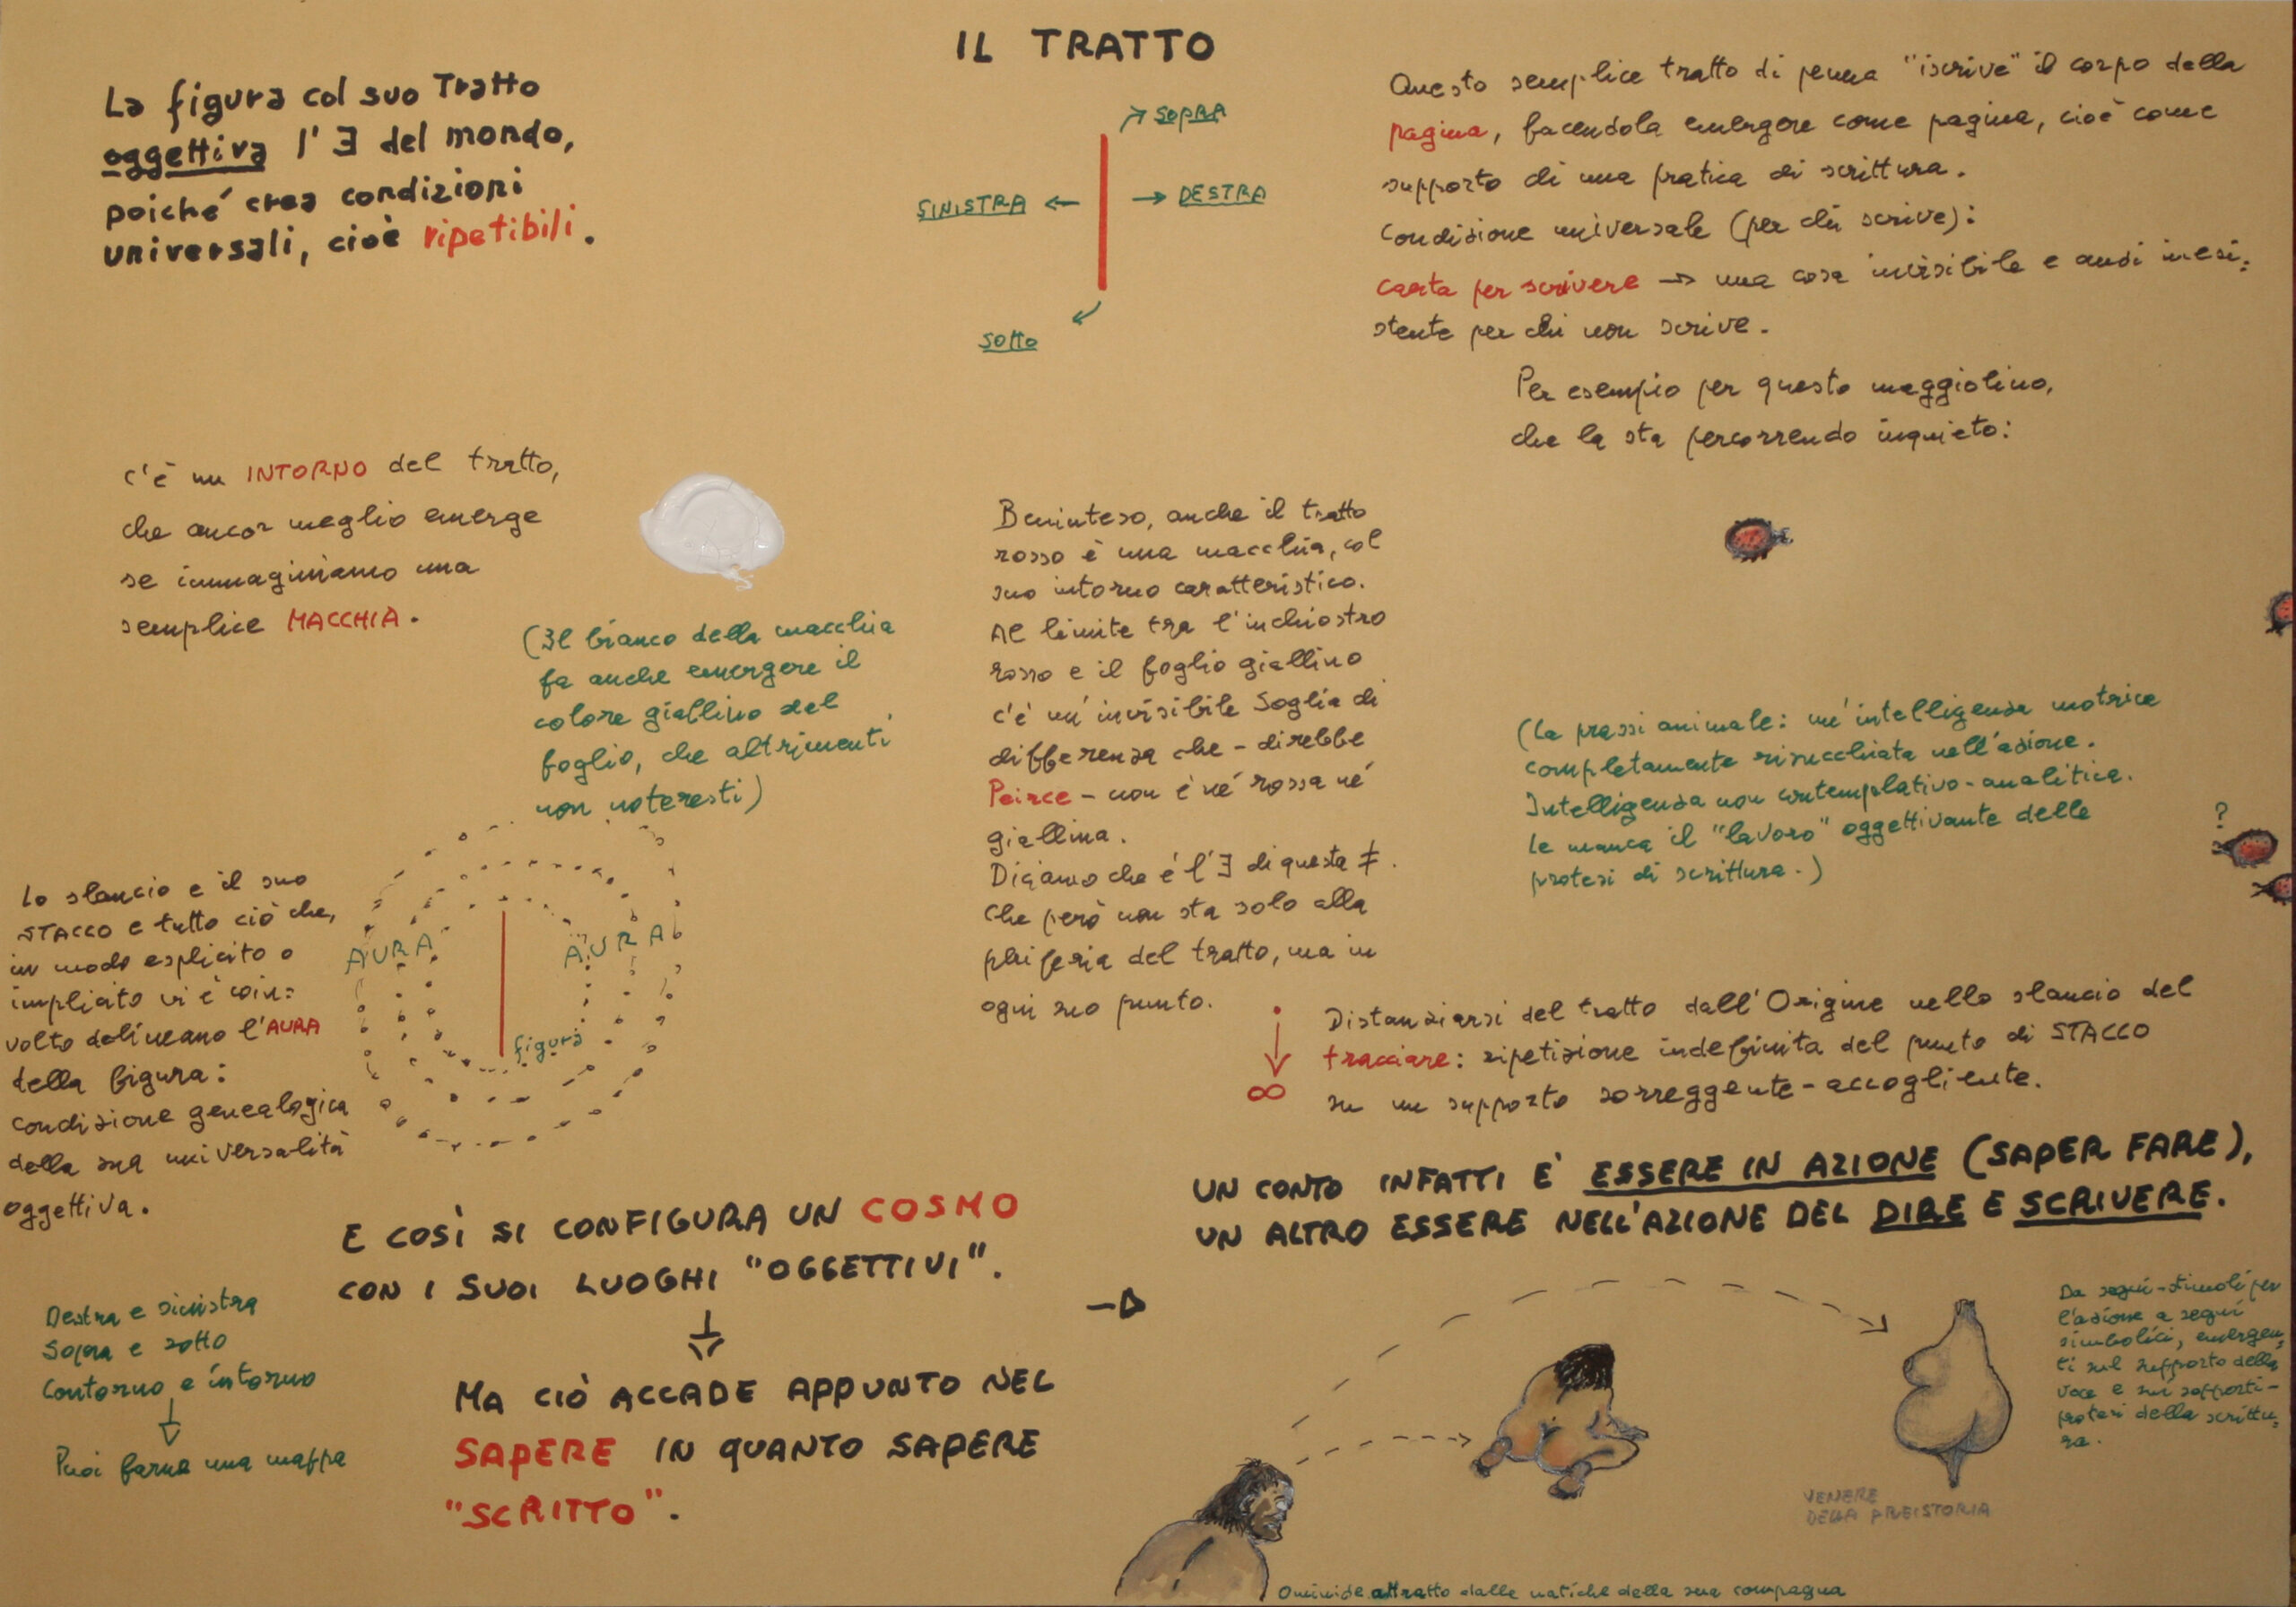 IL TRATTO
La figura col suo Tratto
oggettiva l'∃ del mondo,
poiché crea condizioni
universali, cioè ripetibili.
SOPRA
SINISTRA
DESTRA
SOTTO
Questo semplice tratto di penna "iscrive" il corpo della
pagina, facendola emergere come pagina, cioè come
supporto di una pratica di scrittura.
Condizione universale (per chi scrive):
carta per scrivere → una cosa invisibile e anzi inesi=
stente per chi non scrive.
Per esempio per questo maggiolino,
che la sta percorrendo inquieto:
C'è un INTORNO del tratto,
che ancor meglio emerge
se immaginiamo una
semplice MACCHIA.
(Il bianco della macchia
fa anche emergere il
colore giallino del
foglio, che altrimenti
non noteresti)
Beninteso, anche il tratto
rosso è una macchia, col
suo intorno caratteristico.
Al limite tra l'inchiostro
rosso e il foglio giallino
c'è un'invisibile Soglia di
differenza che - direbbe
Peirce - non è né rossa né
giallina.
Diciamo che è l'∃ di questa ≠.
Che però non sta solo alla
periferia del tratto, ma in
ogni suo punto.
(La prassi animale: un'intelligenza motrice
completamente risucchiata nell'azione.
Intelligenza non contemplativo-analitica.
Le manca il "lavoro" oggettivante delle
protesi di scrittura.)
?
Lo slancio e il suo
STACCO e tutto ciò che,
in modo esplicito o
implicito vi è coin=
volto delineano l'AURA
della figura:
condizione genealogica
della sua universalità
oggettiva.
AURA
AURA
figura
∞
Distanziarsi del tratto dall'Origine nello slancio del
tracciare: ripetizione indefinita del punto di STACCO
su un supporto sorreggente-accogliente.
UN CONTO INFATTI E' ESSERE IN AZIONE (SAPER FARE),
UN ALTRO ESSERE NELL'AZIONE DEL DIRE E SCRIVERE.
E COSÌ SI CONFIGURA UN COSMO
CON I SUOI LUOGHI "OGGETTIVI".
Destra e sinistra
Sopra e sotto
Contorno e intorno
Puoi farne una mappa
MA CIÒ ACCADE APPUNTO NEL
SAPERE IN QUANTO SAPERE
"SCRITTO".
Da segni-stimoli per
l'azione a segni
simbolici, emergen=
ti sul supporto della
voce e sui supporti-
protesi della scrittu=
ra.
VENERE
DELLA PREISTORIA
Ominide attratto dalle natiche della sua compagna